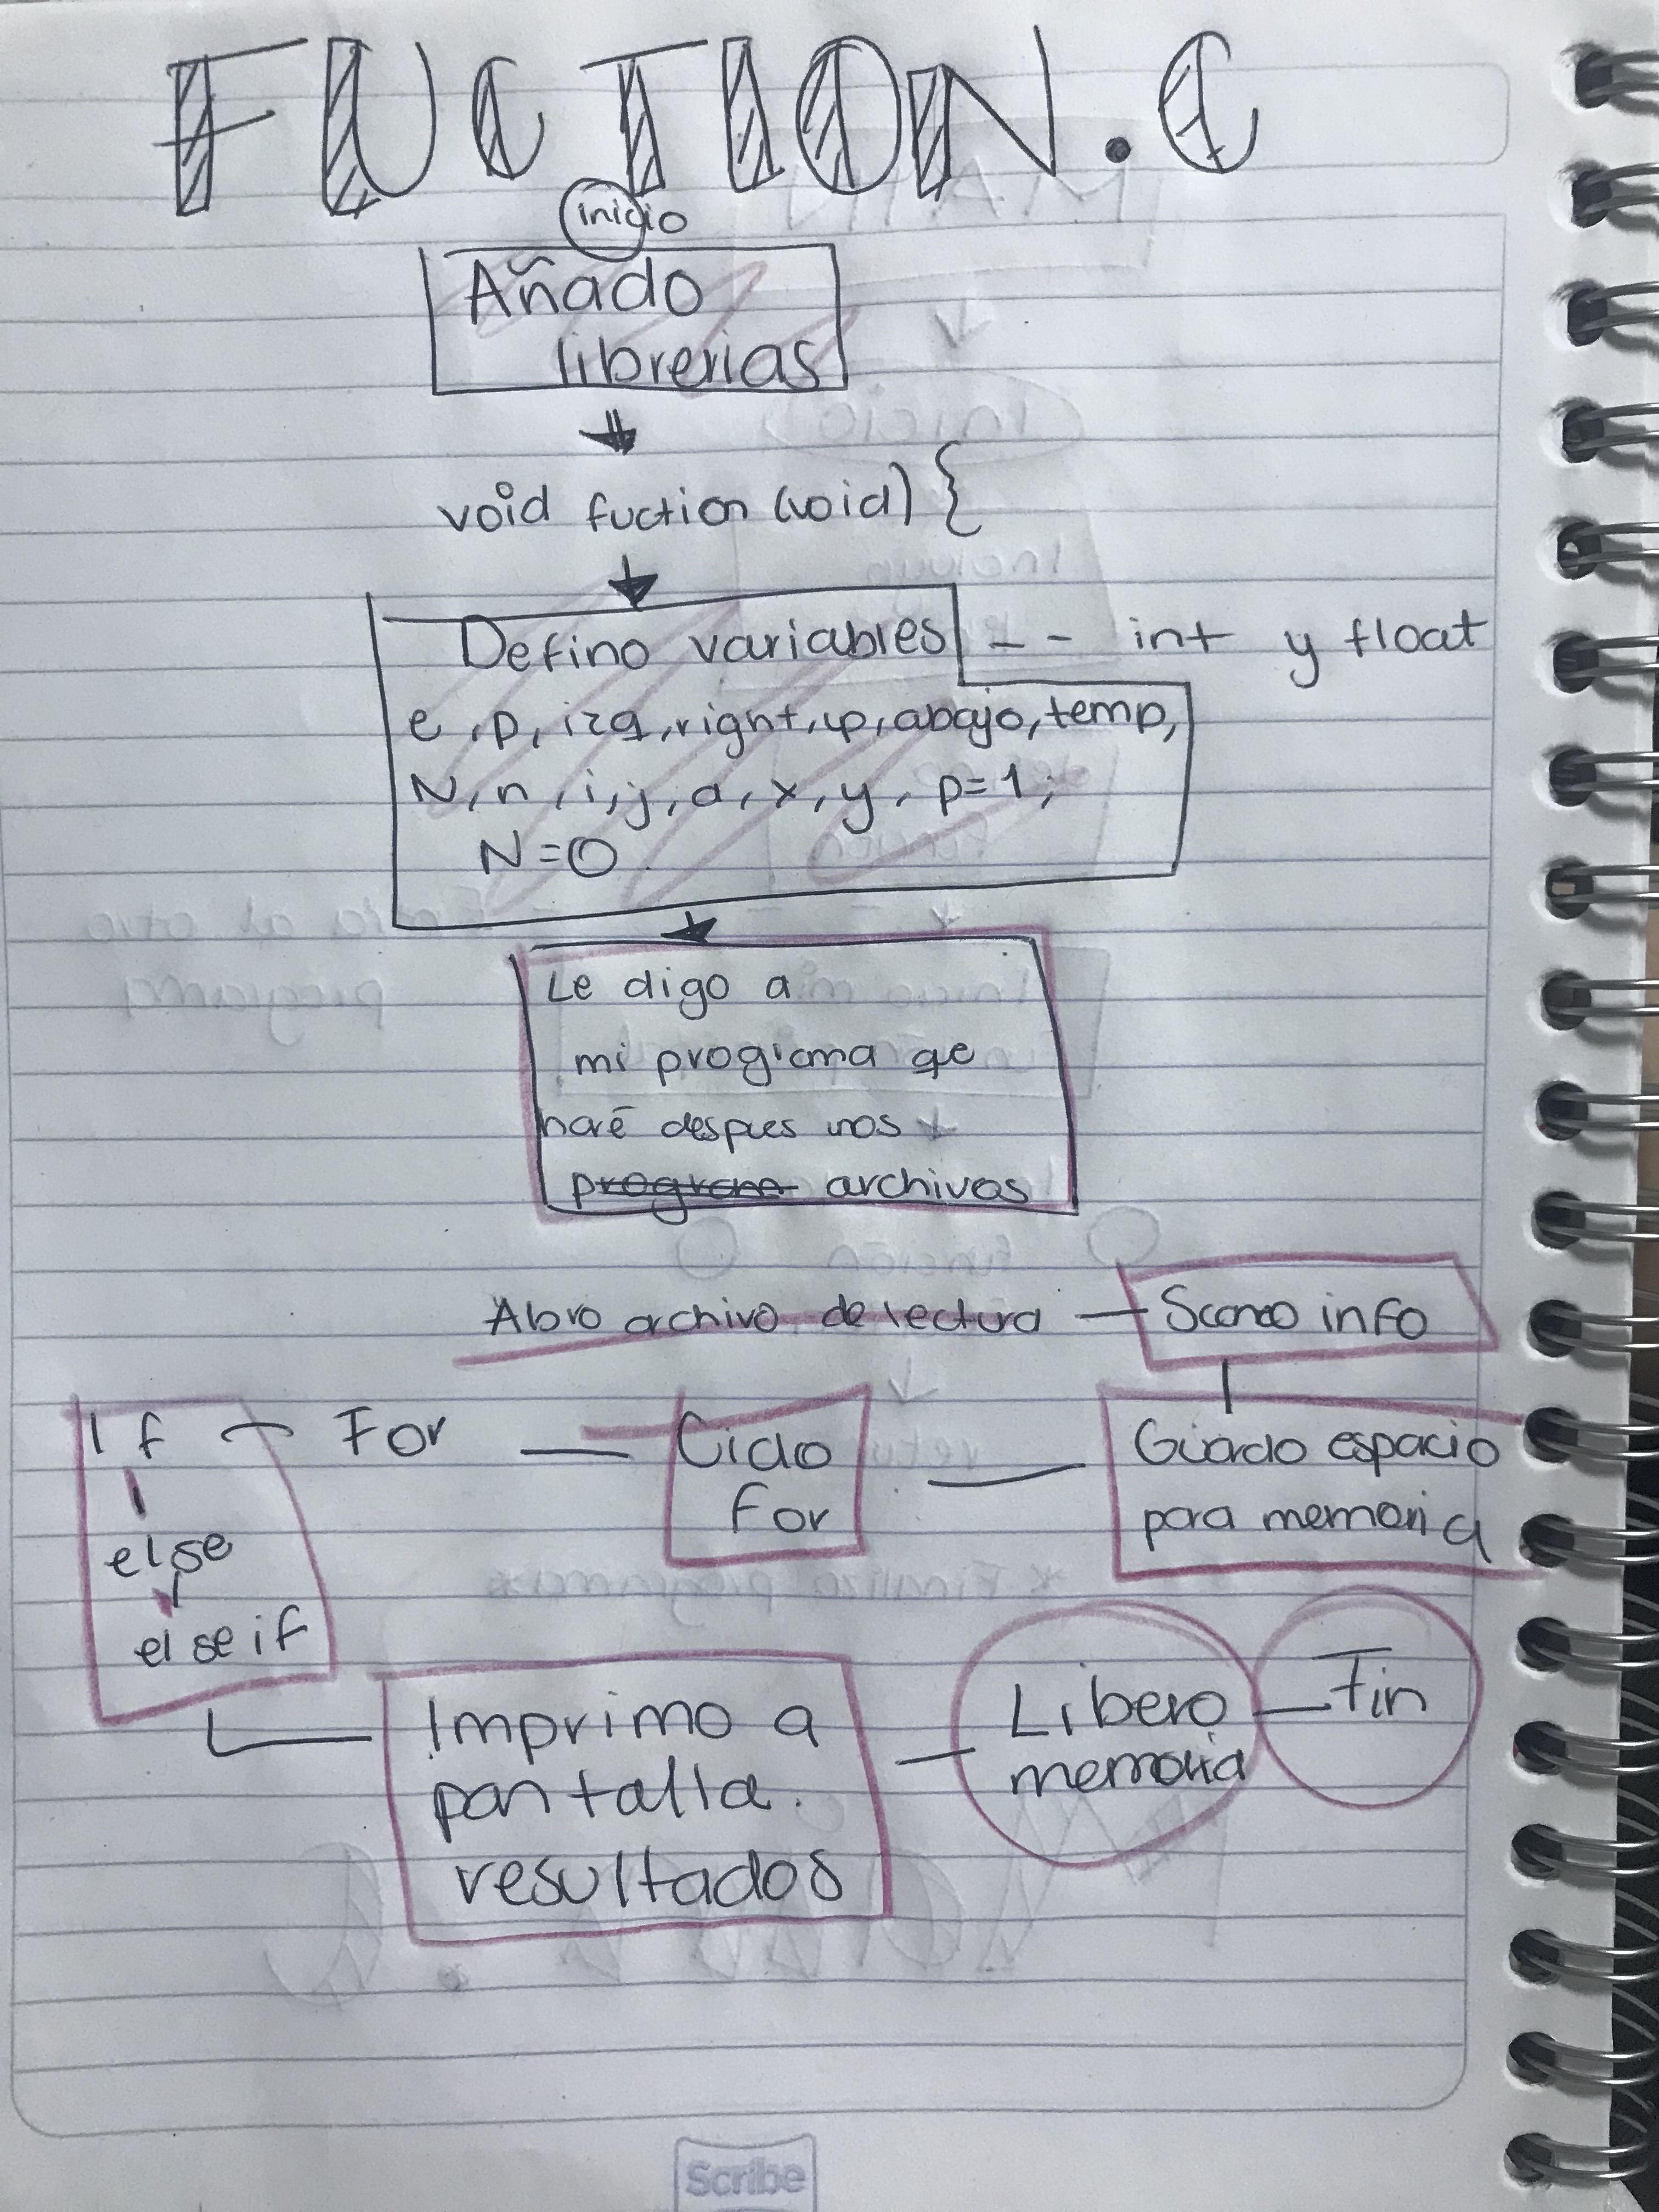 FUCTION.C
inicio
Añado
librerias
void fuction (void) {
Defino variables -- int y float
e, p, izq, right, up, abajo, temp,
N, n, i, j, a, x, y, p=1;
N=0.
Le digo a
mi programa qe
haré despues unos
program archivos
Abro archivo de lectura — Scaneo info
If — For — Ciclo
For
Guardo espacio
para memoria
else
else if
Imprimo a
pantalla.
resultados
Libero
memoria
— Fin
Scribe